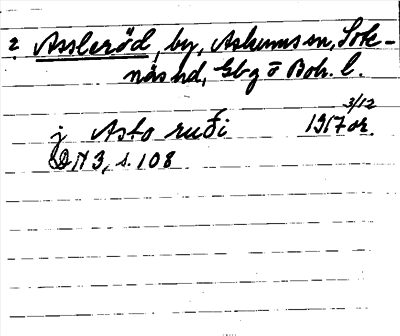 ? Assleröd, by, Askums sn, Sotenäs hd, Gbg o Boh. l.
j Asto ruði 3/12 1317 or.
DN 3, s. 108